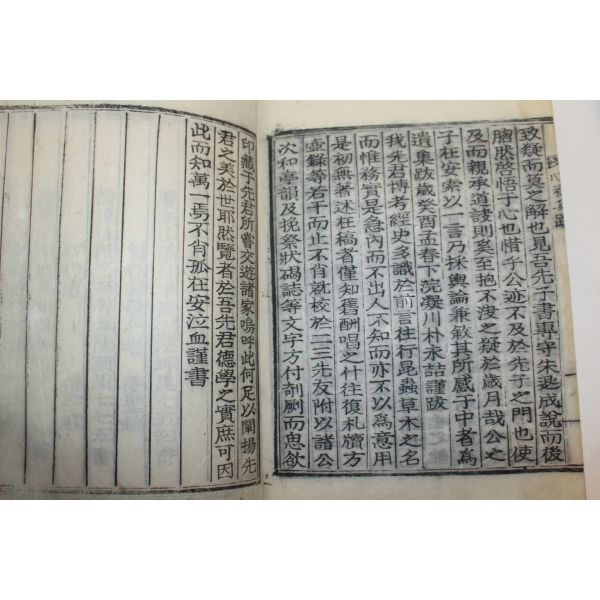 致疑而莫之解也見吾先子書專守朱退成說而後
胸肰啓悟于心也惜乎公迹不及於先子之門也使
及而親承道諼則奚至抱不洩之疑於歲月哉公之
子在安索以一言乃採輿論兼敘其所感于中者爲
遺集跋歲癸酉孟春下浣凝川朴永喆謹跋
我先君博考經史多識於前言往行昆蟲草木之名
而惟務實是急內而不出人不知而亦不以爲意用
是初無著述在稿者僅知舊酬唱之什往復札牘方
壺錄等若干而止不肖就校於二三先友附以諸公
次和亭韻及挽祭狀碣誌等文字方付剞劂而思欲
印藏于先君所嘗交遊諸家嗚呼此何足以闡揚先
君之美於世耶然覽者於吾先君德學之實庶可因
此而知萬一焉不肖孤在安泣血謹書